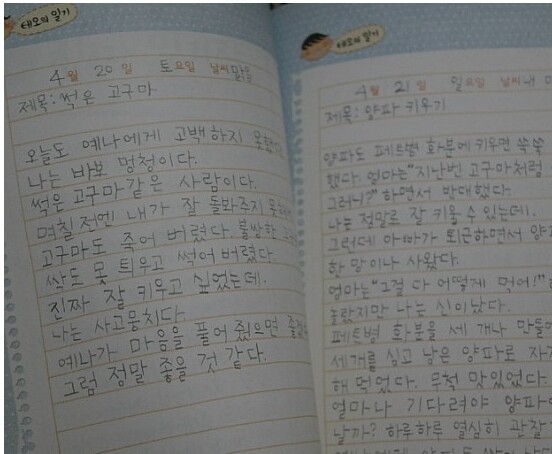 태오의 일기
4월 20일 토요일 날씨 맑음
제목: 썩은 고구마
오늘도 예나에게 고백하지 못했다
나는 바보 멍청이다.
썩은 고구마같은 사람이다.
며칠전엔 내가 잘 돌봐주지 못해
고구마도 죽어 버렸다. 불쌍한
싹도 못 틔우고 썩어 버렸다
진짜 잘 키우고 싶었는데.
나는 사고뭉치다.
예나가 마음을 풀어 줬으면
그럼 정말 좋을 것 같다.
태오의 일기
4월 21일 일요일 날씨
제목: 양파 키우기
양파도 페트병 화분에 키우면 쑥쑥
했다. 엄마는 "지난번 고구마처럼
그러니?" 하면서 반대했다.
나는 정말로 잘 키울 수 있는데.
그런데 아빠가 퇴근하면서
한 망이나 사왔다.
엄마는 "그걸 다 어떻게 먹어!"
놀랐지만 나는 신이났다.
페트병 화분을 세 개나
세개를 심고 남은 양파로
해 먹었다. 무척 맛있었다.
얼마나 기다려야 양파
날까? 하루하루 열심히